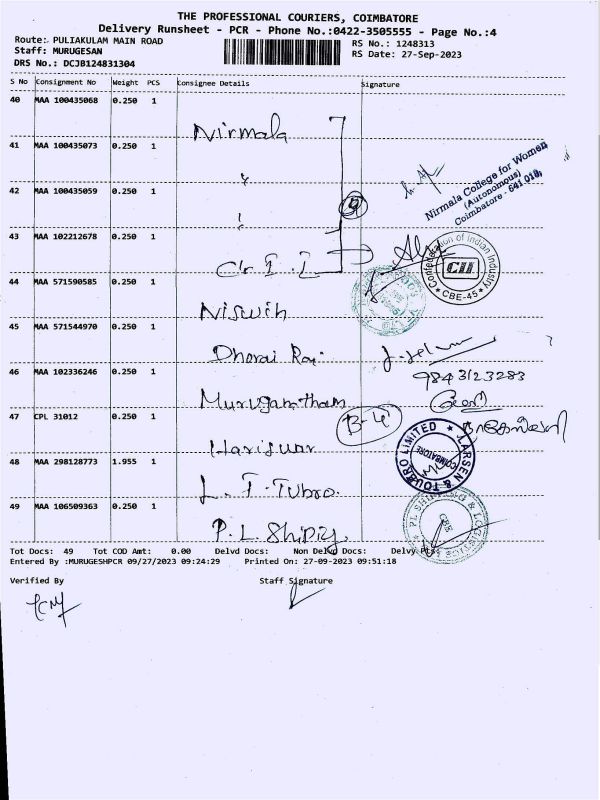 THE PROFESSIONAL COURIERS, COIMBATORE
Delivery Runsheet - PCR - Phone No.:0422-3505555 - Page No.:4
Route: PULIAKULAM MAIN ROAD
RS No.: 1248313
Staff: MURUGESAN
RS Date: 27-Sep-2023
DRS No.: DCJB124831304
S No Consignment No Weight PCS Consignee Details Signature
40 MAA 100435068 0.250 1
Nirmala
41 MAA 100435073 0.250 1
Nirmala College for Women
(Autonomous)
Coimbatore - 641 018,
42 MAA 100435059 0.250 1
43 MAA 102212678 0.250 1
C.I.I
Confederation of Indian Industry
CII
* CBE-45 *
44 MAA 571590585 0.250 1
Niswin
45 MAA 571544970 0.250 1
Dhorai Raj
46 MAA 102336246 0.250 1
9843123283
Murugantham
47 CPL 31012 0.250 1
B-4
Hariswar
LARSEN & TOUBRO LIMITED *
COIMBATORE
48 MAA 298128773 1.955 1
L. T. Tubro.
49 MAA 106509363 0.250 1
P.L. Ship
PL SHIPPING & LOGISTICS
CBE
Tot Docs: 49 Tot COD Amt: 0.00 Delvd Docs: Non Delvd Docs: Delvy Pts:
Entered By :MURUGESHPCR 09/27/2023 09:24:29 Printed On: 27-09-2023 09:51:18
Verified By Staff Signature